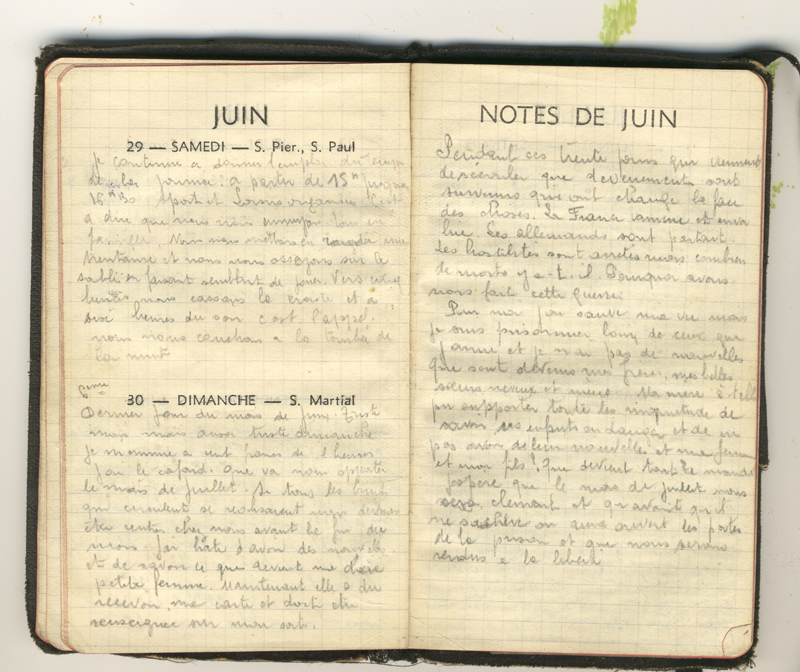 JUIN
29 — SAMEDI — S. Pier., S. Paul
je continue a donner l'emploi du temps
journee : a partir de 15h jusqua
16h30 sport et
a dire que nous nous tous en
famille. Nous nous mettons en une
trentaine et nous nous asseyons sur le
sable en faisant semblant de jouer. Vers cinq
heures nous cassons la croute et a
six heures du soir c'est l'appel.
nous nous couchons a la tombée de
la nuit
30 — DIMANCHE — S. Martial
Dernier jour du mois de juin. Triste
mois mais aussi triste dimanche
je m'ennuie a cent francs de l'heure
j'ai le cafard. Que va nous apporter
le mois de juillet. Si tous les bruits
qui circulent se realisaient nous devons
être rentrer chez nous avant la fin du
mois. J'ai hâte d'avoir des nouvelles
et de savoir ce que devient ma chère
petite femme. Maintenant elle a du
recevoir ma carte et doit etre
renseignée sur mon sort.
NOTES DE JUIN
Pendant ces trente jours qui viennent
de s'ecouler que d'evenements sont
survenus qui ont changé la face
des choses. La France vaincue et enva
hie. Les allemands sont partout.
Les hostilités sont arretés mais combien
de morts y a-t-il. Pourquoi avons
nous fait cette guerre.
Pour ma j'ai sauvé ma vie mais
je suis prisonnier loin de ceux que
j'aime et je n'ai pas de nouvelles
Que sont devenus mes frères, mes belles
soeurs neveux et nièce. Ma mere a t'elle
pu supporter toute les inquietude de
savoir ses enfants en danger et de ne
pas avoir de leur nouvelles et ma femme
et mon fils. Que devient tout ce monde
J'espere que le mois de juillet nous
sera clement et qu'avant qu'il
ne s'achève on aura ouvert les portes
de la prison et que nous serons
rendus a la liberté